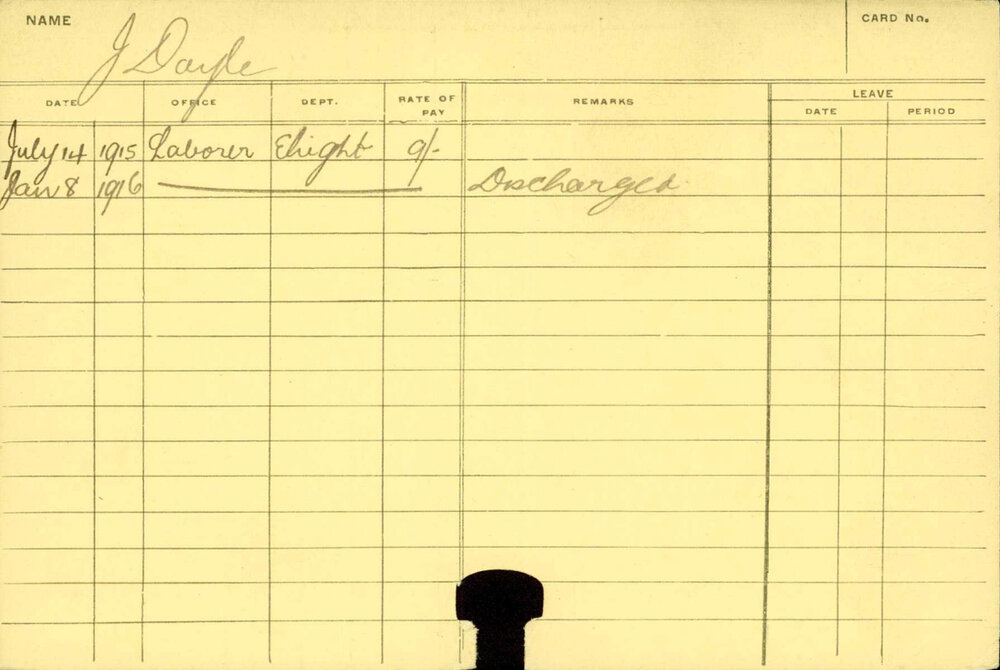 NAME J Doyle CARD No.
DATE OFFICE DEPT. RATE OF PAY REMARKS LEAVE
DATE PERIOD
July 14 1915 Laborer Elright 9/-
Jan 8 1916 Discharged